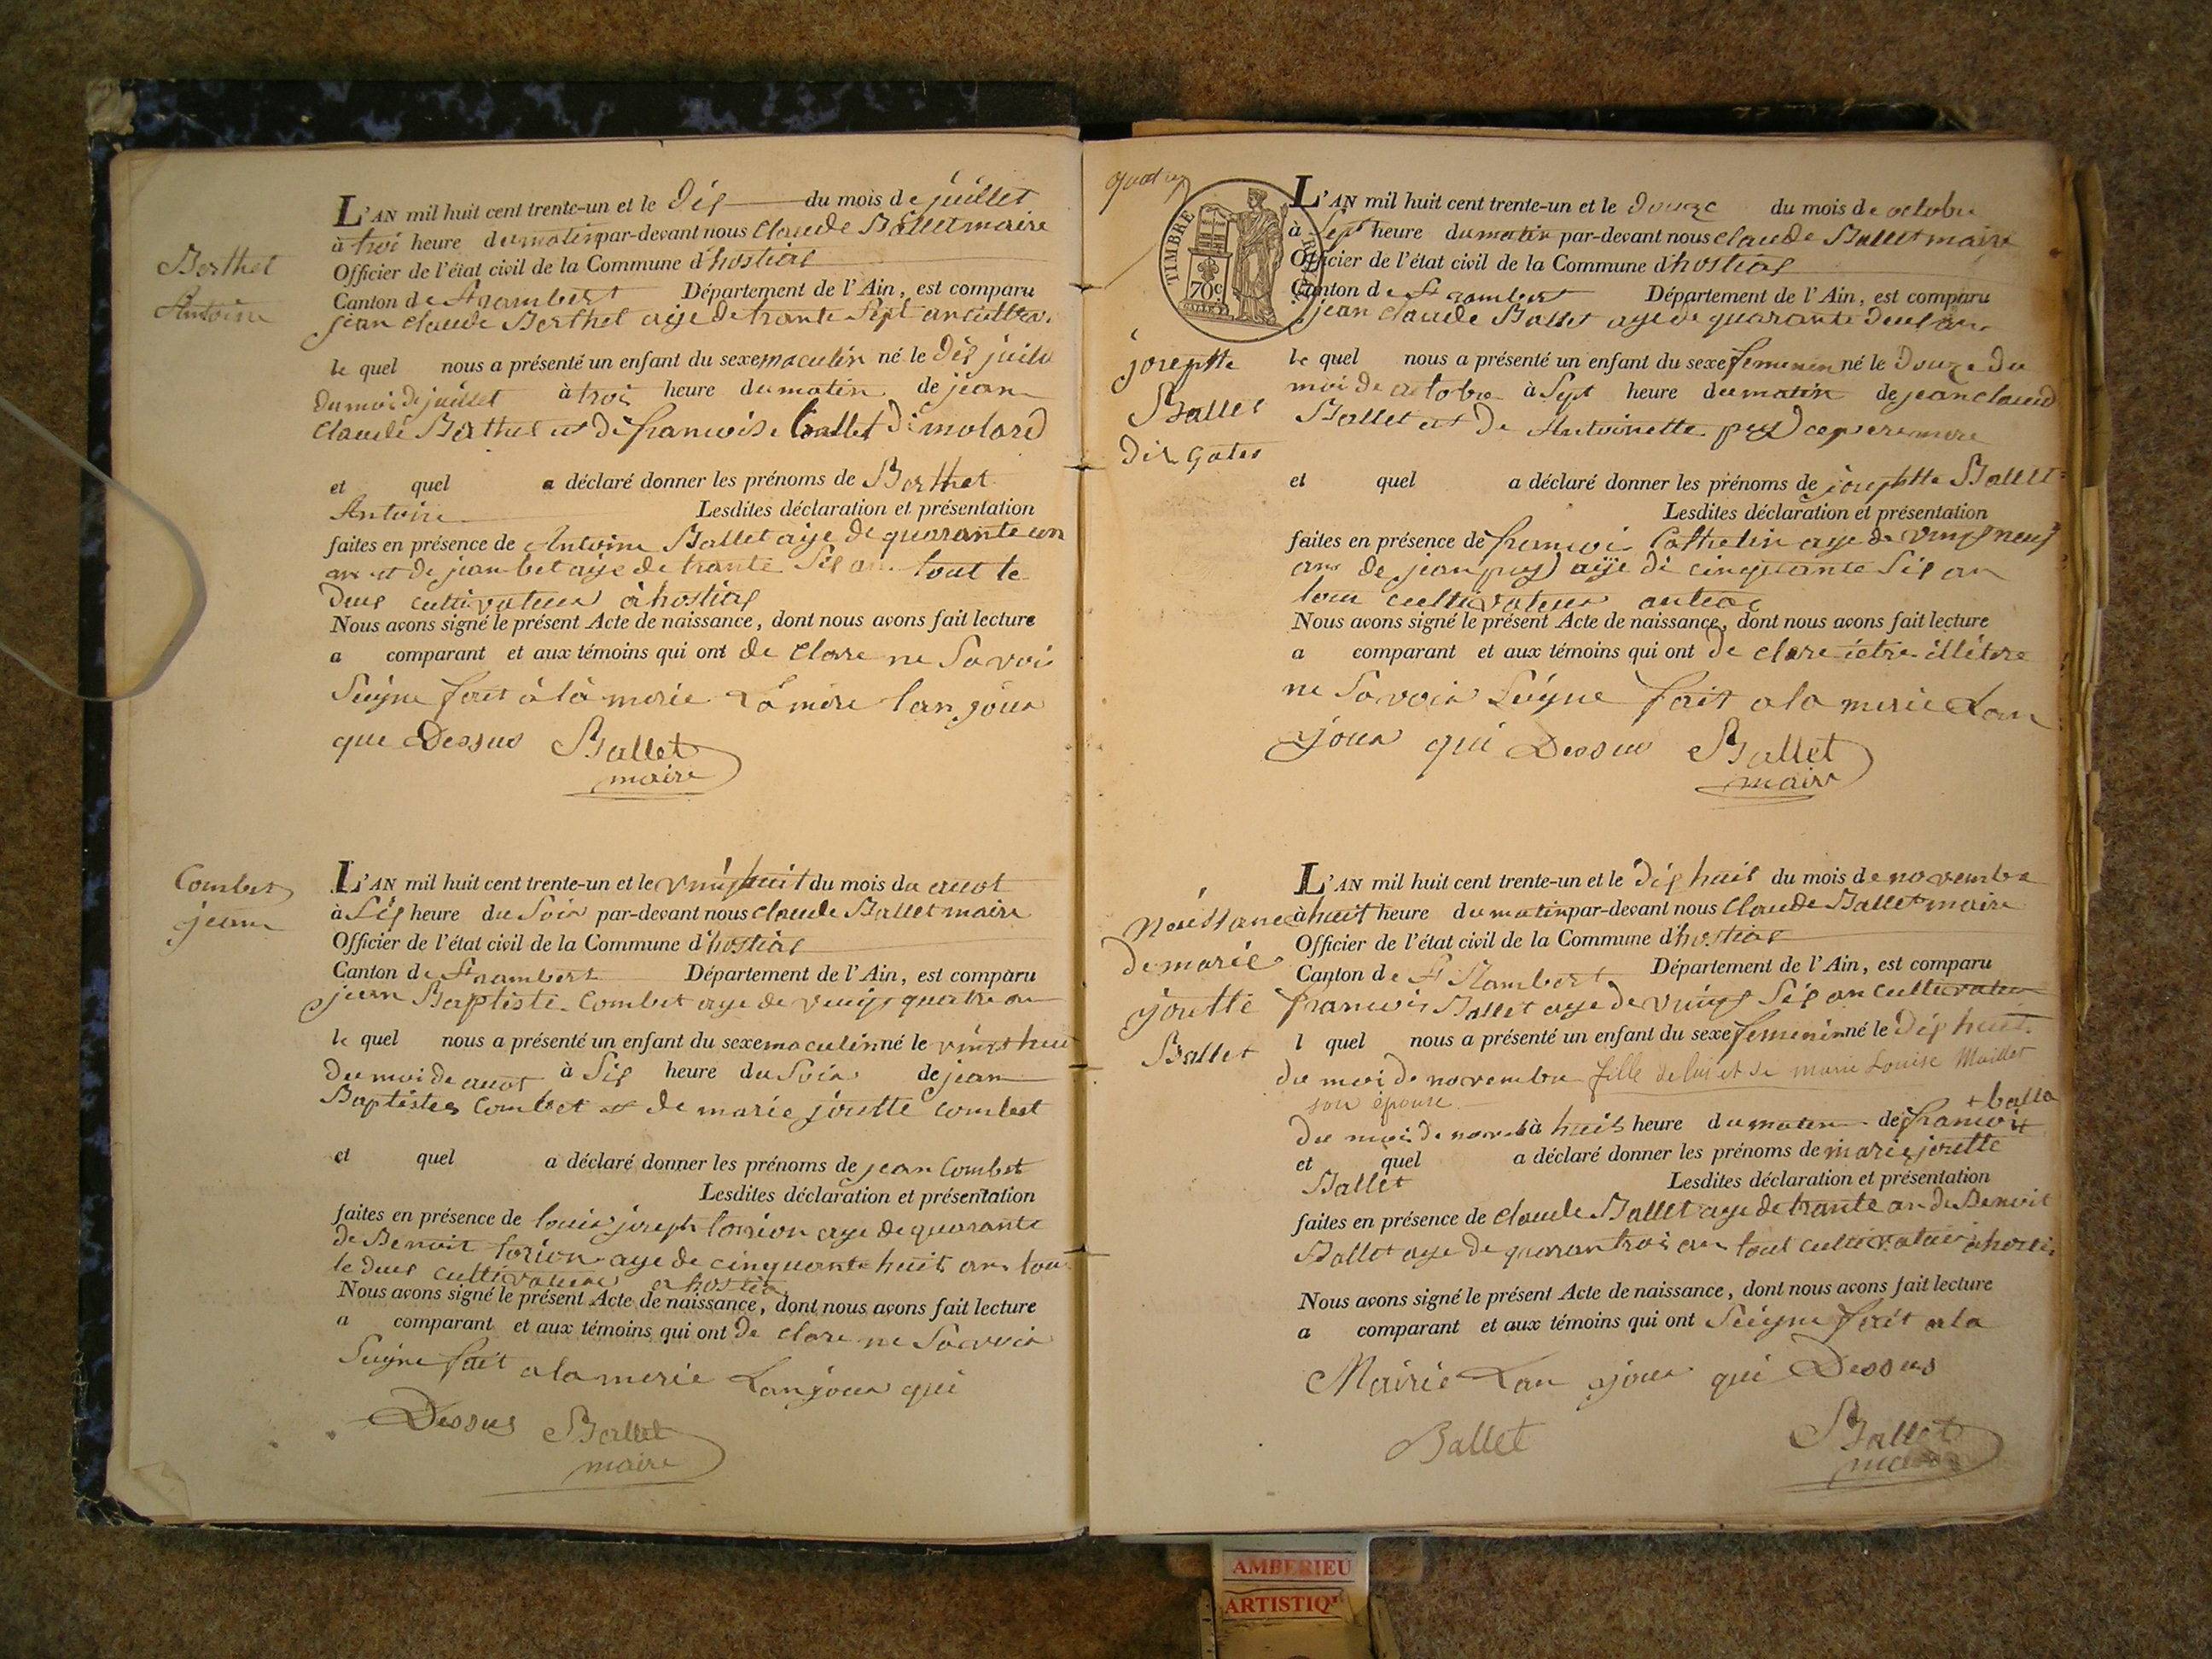 Berthet
Antoine
L'AN mil huit cent trente-un et le Dis du mois de juillet
à troi heure du matin par-devant nous Claude Ballet maire
Officier de l'état civil de la Commune d'hostias
Canton de St rambert Département de l'Ain, est comparu
jean claude Berthet age de trante Sept an
le quel nous a présenté un enfant du sexe maculin né le Dis
du moi de juillet à troi heure du matin de jean
Claude Berthet et de francoise Ballet di molard
et quel a déclaré donner les prénoms de Berthet
Antoine Lesdites déclaration et présentation
faites en présence de Antoine Ballet age de quarante un
an et de jean bet age de trante Sis an tout le
deus cultivateur à hostias
Nous avons signé le présent Acte de naissance, dont nous avons fait lecture
a comparant et aux témoins qui ont de clare ne Savoir
Seigne fait à la merie lan jour
que Dessus Ballet
maire
Combet
jean
L'AN mil huit cent trente-un et le vingt huit du mois du auot
à Sis heure du Soir par-devant nous claude Ballet maire
Officier de l'état civil de la Commune d'hostias
Canton de St rambert Département de l'Ain, est comparu
jean Baptiste Combet age de vingt quatre an
le quel nous a présenté un enfant du sexe maculin né le vingt hui
du moi de auot à Sis heure du Soir de jean
Baptistes Combet et de marie joutte combet
et quel a déclaré donner les prénoms de jean Combet
Lesdites déclaration et présentation
faites en présence de louis joseph torion age de quarante
de Benoit torion age de cinquante huit ans tou
le deus cultivateur a hostias
Nous avons signé le présent Acte de naissance, dont nous avons fait lecture
a comparant et aux témoins qui ont de clare ne Savoir
Seigne fait a la merie Lan jour qui
Dessus Ballet
maire
TIMBRE
70c
josephte
Ballet
L'AN mil huit cent trente-un et le douze du mois de octobre
à Sept heure du matin par-devant nous claude Ballet maire
Officier de l'état civil de la Commune d'hostias
Canton de St rambert Département de l'Ain, est comparu
jean claude Ballet age de quarante deus an
le quel nous a présenté un enfant du sexe femenin né le Douze du
moi de octobre à Sept heure du matin de jean claud
Ballet et de Antoinette
et quel a déclaré donner les prénoms de josephte Ballet
Lesdites déclaration et présentation
faites en présence de francois Cathelin age de vingt neuf
ans de jean aije de cinquante Sis an
tour cultivateur
Nous avons signé le présent Acte de naissance, dont nous avons fait lecture
a comparant et aux témoins qui ont de clare illitere
ne Savoir Seigne fait a la merie Lan
jour qui Dessus Ballet
maire
Naissance
de marie
joutte
Ballet
L'AN mil huit cent trente-un et le dis huit du mois de novembre
à huit heure du matin par-devant nous Claude Ballet maire
Officier de l'état civil de la Commune d'hostias
Canton de St Rambert Département de l'Ain, est comparu
francois Ballet age de vingt Sis an cultivateu
l quel nous a présenté un enfant du sexe femenin né le Dis huit
du moi de novembre fille de lui et de marie Louise Maillet
son épouse
du moi de à huit heure du matin de francois + balla
et quel a déclaré donner les prénoms de marie joutte
Ballet Lesdites déclaration et présentation
faites en présence de claude Ballet age de trante an de Benoit
Ballet age de quaran trois an tout cultivateur
Nous avons signé le présent Acte de naissance, dont nous avons fait lecture
a comparant et aux témoins qui ont Seigne fait a la
Mairie Lan jour qui Dessus
Ballet Ballet
maire
AMBERIEU
ARTISTIQ